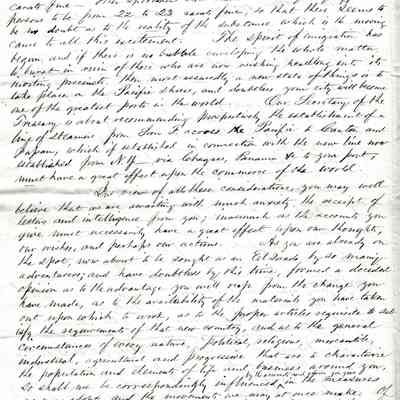 carats fine.
persons to be from 22 to 23 carats fine; so that there seems to
be no doubt as to the reality of the substance which is the moving
cause to all this excitement. The spirit of emigration has
begun, and if there is no bubble enveloping the whole matter,
to burst in view of those who are now wishing headlong into its
vortex precincts, then most assuredly a new state of things is to
take place on the Pacific shores, and doubtless your city will become
one of the greatest ports in the world. Our Secretary of the
Treasury is about recommending prospectively the establishment of a
line of steamers from San F across the Pacific to Canton and
Japan, which if established in connection with the new line now
established from N.Y. via Chagres, Panama &c to your port,
must have a great effect upon the commerce of the world.
In view of all these considerations, you may well
believe that we are awaiting with much anxiety the receipt of
letters and intelligence from you; inasmuch as the accounts you
give must necessarily have a great effect upon our thoughts,
our wishes, and perhaps our actions. As you are already on
the spot, now about to be sought as an El Dorado by so many
adventurers; and have doubtless by this time, formed a decided
opinion as to the advantage you will reap from the change you
have made, as to the availability of the materials you have taken
out upon which to work, as to the proper articles requisite to sat
isfy the requirements of that new country, and as to the general
circumstances of every nature, political, religious, mercantile,
industrial, agricultural and progressive that are to characterize
the population and elements of life and business around you,
so shall we be correspondingly influenced by the accounts
in the measures
and the movements we may at once make. Of